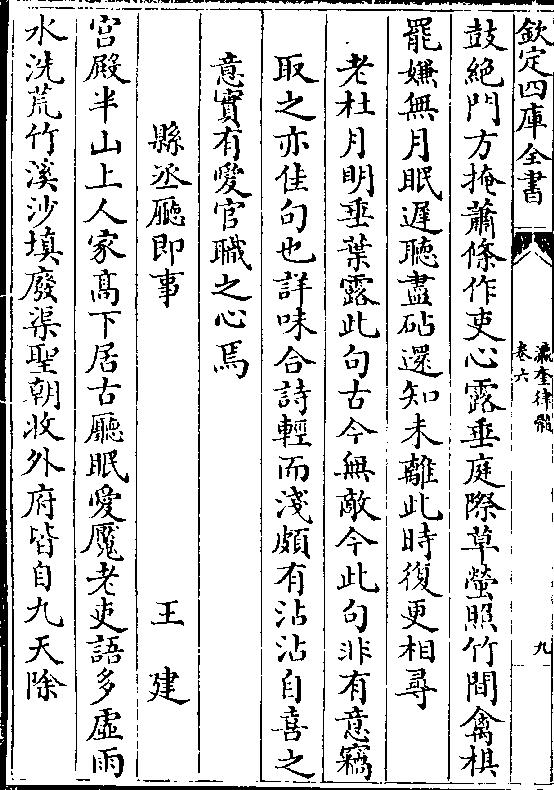 欽定四庫全書
瀛奎律髓
卷六
九
鼓絶門方掩蕭條作吏心露垂庭際草螢照竹間禽棋
罷嫌無月眠遲聽盡砧還知未離此時復更相尋
老杜月明垂葉露此句古今無敵今此句非有意竊
取之亦佳句也詳味合詩輕而淺頗有沾沾自喜之
意實有愛官職之心焉
縣丞廳即事　王建
宮殿半山上人家高下居古廳眠愛魘老吏語多虛雨
水洗荒竹溪沙填廢渠聖朝收外府皆自九天除